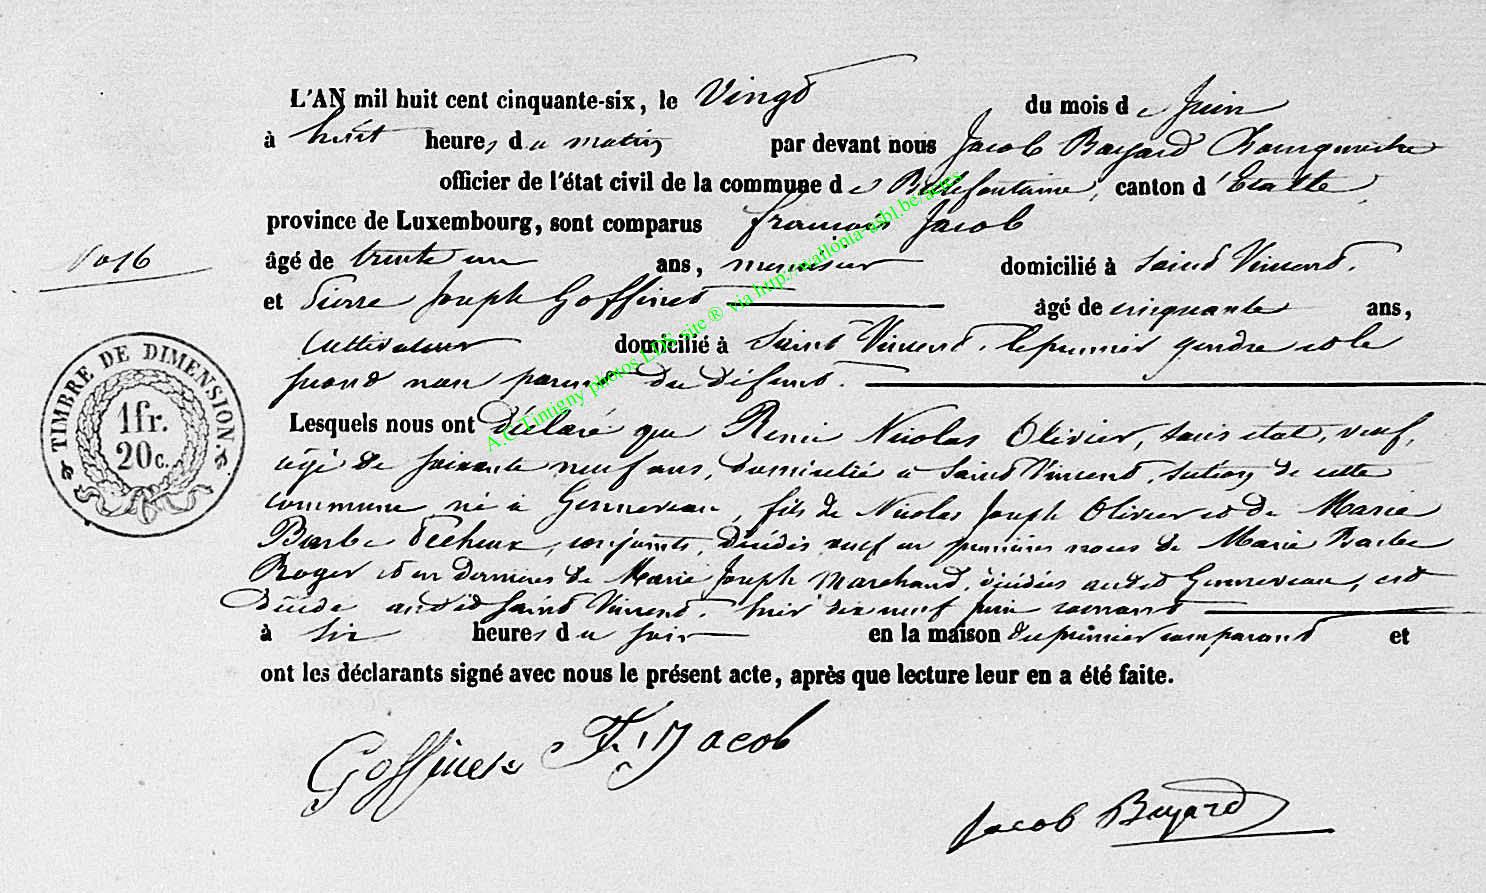 L'AN mil huit cent cinquante-six, le Vingt du mois de Juin
à huit heures du matin par devant nous Jacob Bayard Bourgmestre
officier de l'état civil de la commune de Bellefontaine, canton d'Etalle,
province de Luxembourg, sont comparus François Jacob
No 16
âgé de trente un ans, menuisier domicilié à Saint Vincent.
et Pierre Joseph Goffinet âgé de cinquante ans,
Cultivateur domicilié à Saint Vincent. le premier gendre et le
second non parent du défunt.
TIMBRE DE DIMENSION.
1 fr.
20 c.
Lesquels nous ont déclaré que Remi Nicolas Olivier, sans état, veuf,
âgé de soixante neuf ans, domicilié à Saint Vincent, section de cette
commune, né à Gennevaux, fils de Nicolas Joseph Olivier et de Marie
Barbe Pecheux, conjoints, décédés veuf en premières noces de Marie Barbe
Roger et en dernières de Marie Joseph Marchand, décédées audit Gennevaux, est
décédé audit Saint Vincent. hier dix neuf juin courant
à six heures du soir en la maison du premier comparant et
ont les déclarants signé avec nous le présent acte, après que lecture leur en a été faite.
Goffinet F. J Jacob
Jacob Bayard
A.C Tintigny photos LDS site ® via http://wallonia-asbl.be/actes